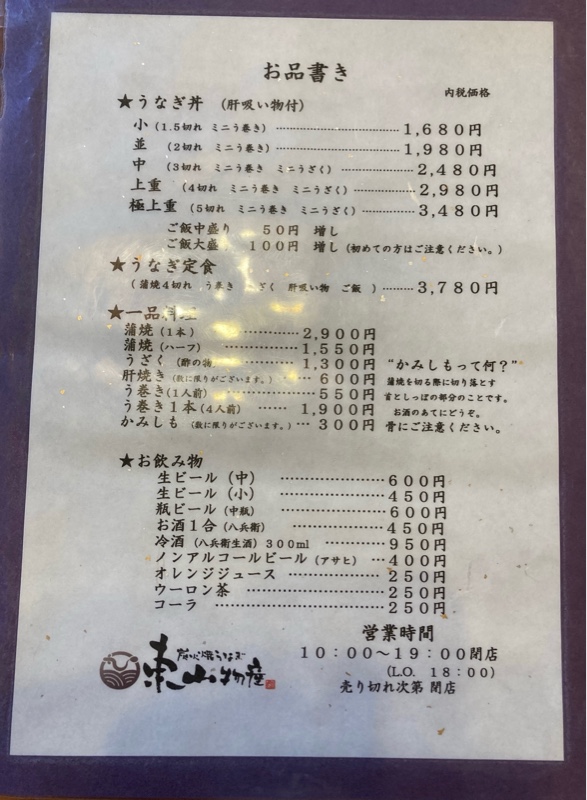 お品書き
内税価格
★うなぎ丼 (肝吸い物付)
小(1.5切れ ミニう巻き) 1,680円
並 (2切れ ミニう巻き) 1,980円
中 (3切れ ミニう巻き ミニうざく) 2,480円
上重 (4切れ ミニう巻き ミニうざく) 2,980円
極上重 (5切れ ミニう巻き ミニうざく) 3,480円
ご飯中盛り 50円 増し
ご飯大盛 100円 増し(初めての方はご注意ください。)
★うなぎ定食
(蒲焼4切れ う巻き ざく 肝吸い物 ご飯 ) 3,780円
★一品料理
蒲焼(1本) 2,900円
蒲焼(ハーフ) 1,550円
うざく (酢の物) 1,300円
肝焼き(数に限りがございます。) 600円
う巻き(1人前) 550円
う巻き1本(4人前) 1,900円
かみしも (数に限りがございます。) 300円
“かみしもって何?”
蒲焼を切る際に切り落とす
首としっぽの部分のことです。
お酒のあてにどうぞ。
骨にご注意ください。
★お飲み物
生ビール(中) 600円
生ビール(小) 450円
瓶ビール(中瓶) 600円
お酒1合(八兵衛) 450円
冷酒(八兵衛生酒)300ml 950円
ノンアルコールビール(アサヒ) 400円
オレンジジュース 250円
ウーロン茶 250円
コーラ 250円
営業時間
10:00～19:00閉店
(L.O. 18:00)
売り切れ次第 閉店
炭火焼うなぎ
東山物産